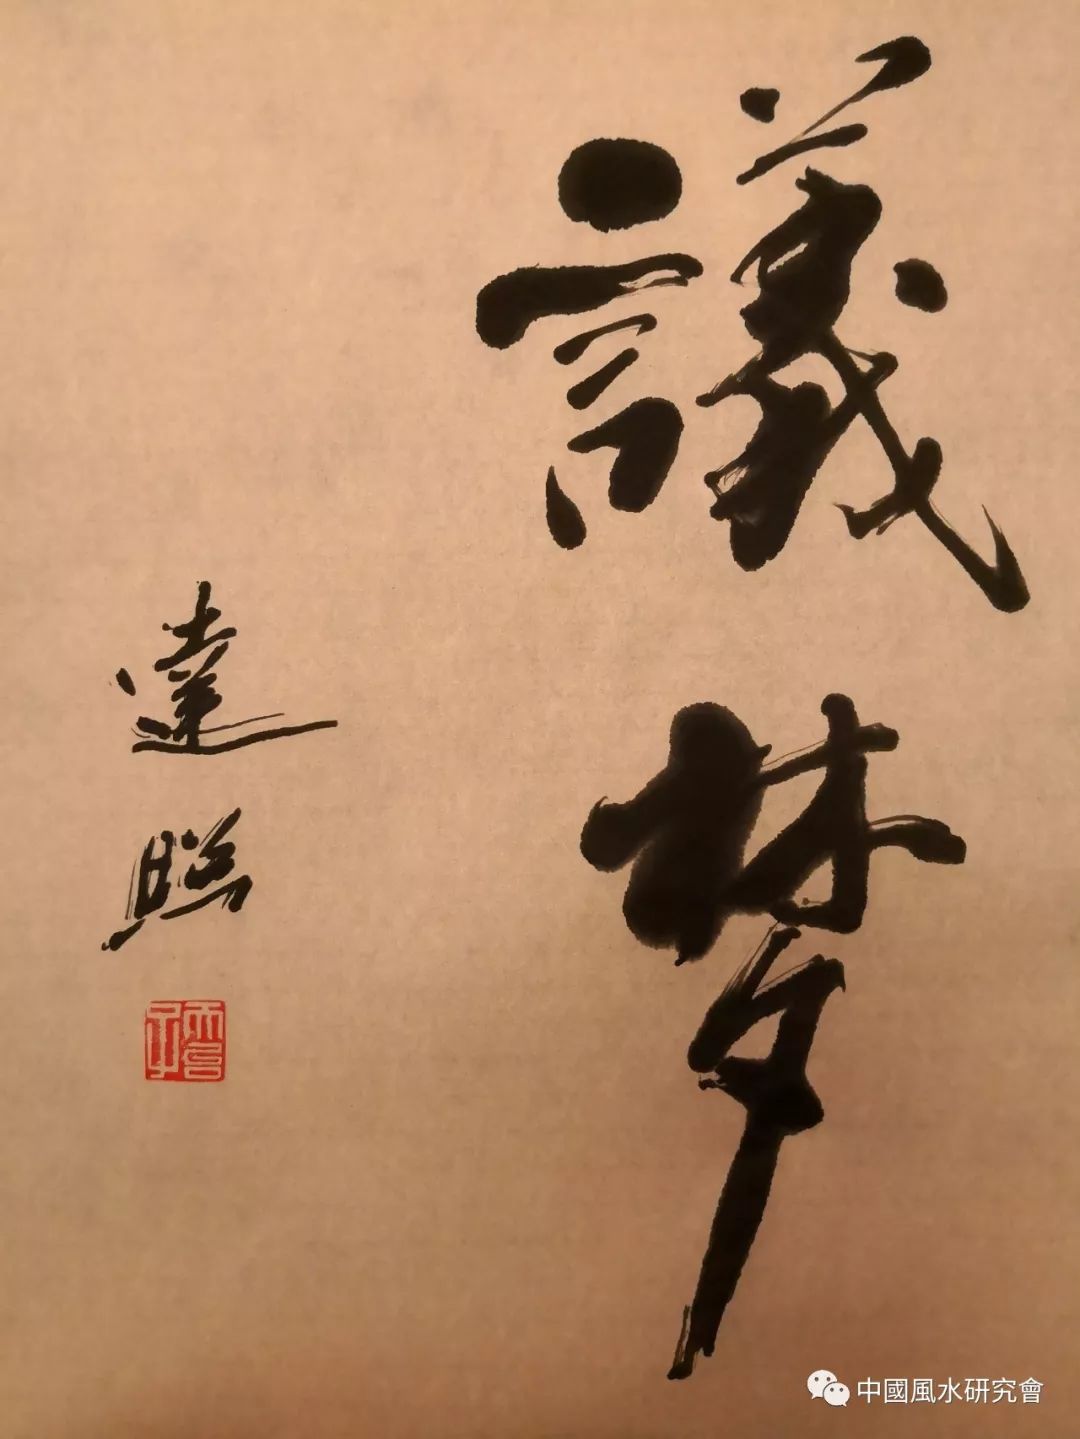 議梦
達照
中國風水研究會